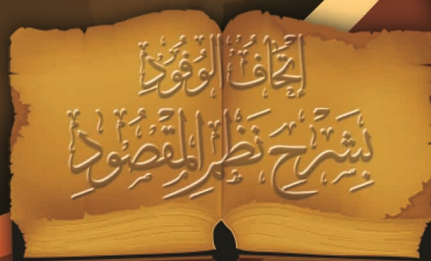 إِتْحَافُ الْوُفُودِ
بِشَرْحِ نَظْمِ الْمَقْصُودِ